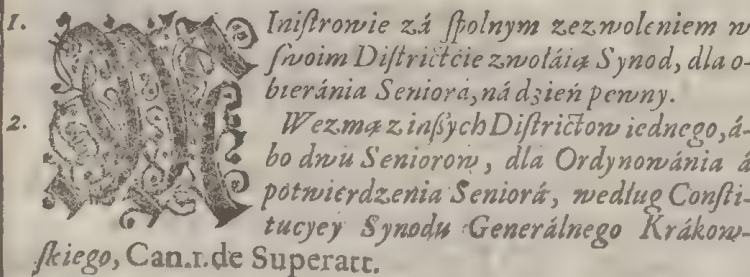 1. MIniſtrowie zá ſpolnym zezwoleniem w
ſwoim Diſtrictćie zwołáią Synod, dla o-
bieránia Seniorá, ná dzień pewny.
2. Wezmą z inſzych Diſtrictow iednego, á-
bo dwu Seniorow, dla Ordynowánia á
potwierdzenia Seniorá, według Conſti-
tucyey Synodu Generálnego Krákow-
ſkiego, Can.1. de Superatt.